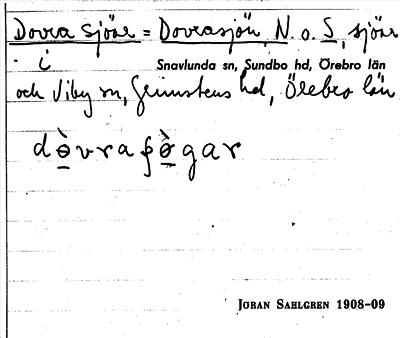 Dovra sjöar = Dovrasjön, N. o. S., sjöar
i Snavlunda sn, Sundbo hd, Örebro län
och Viby sn, Grimstens hd, Örebro län
JÖRAN SAHLGREN 1908-09